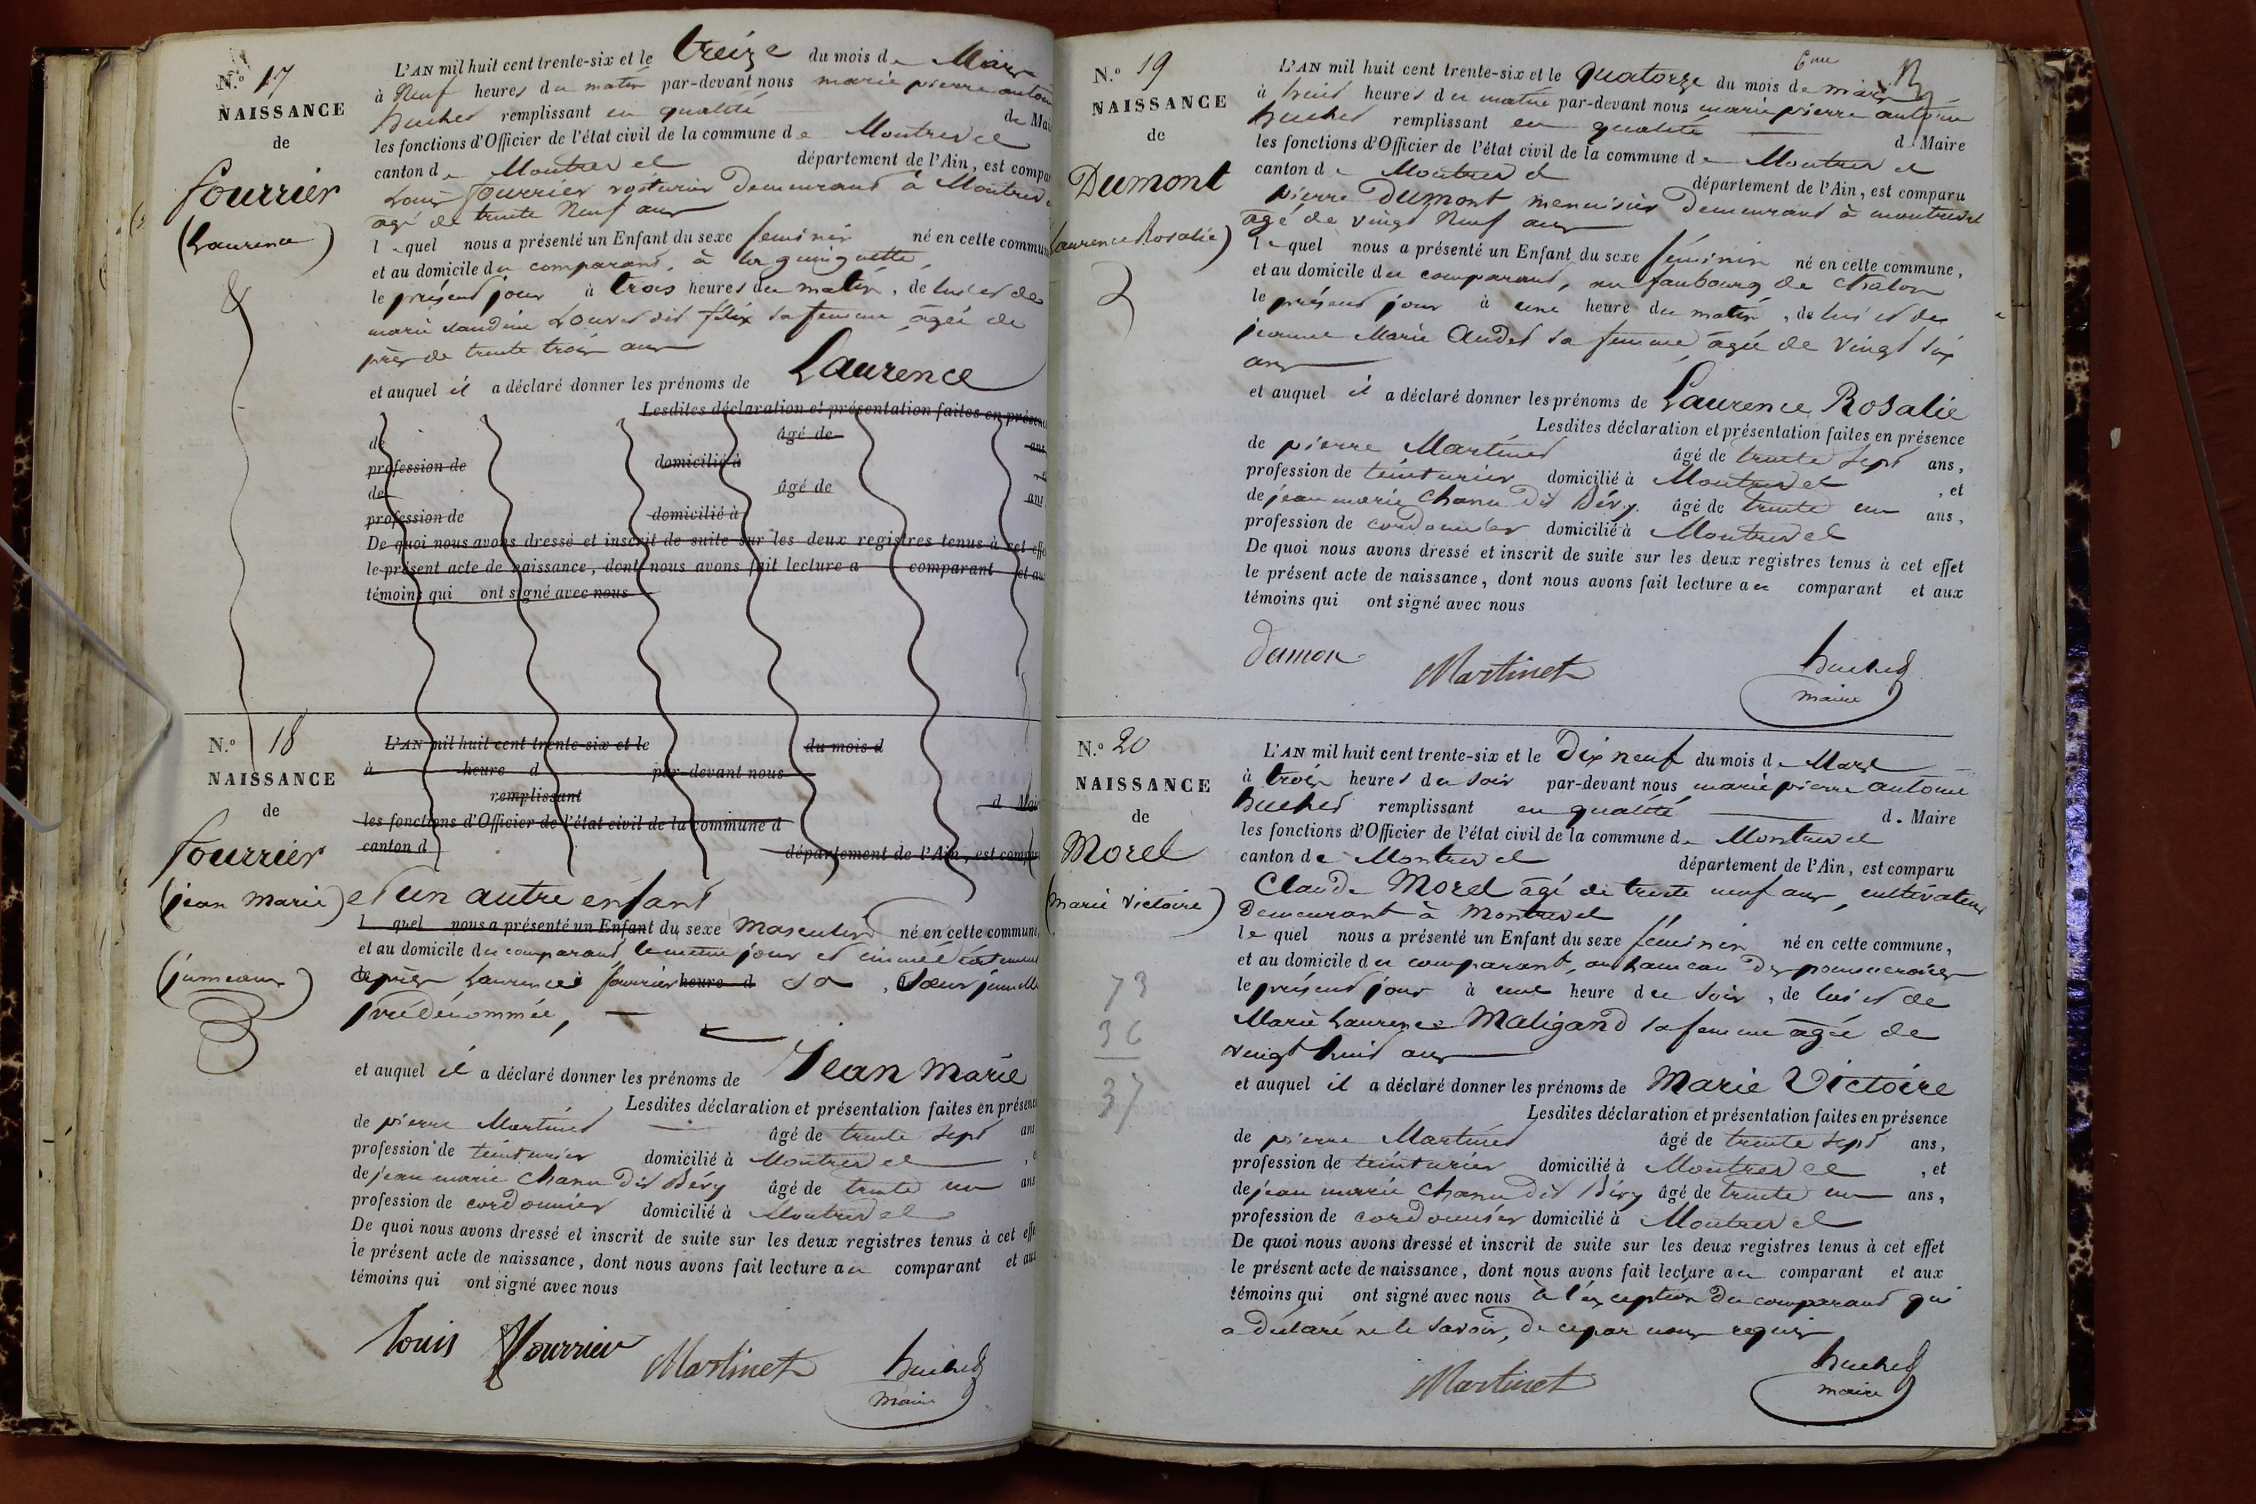 N.o 17
NAISSANCE
de
fourrier
(Laurence)
L'AN mil huit cent trente-six et le treize du mois de Mars
à Neuf heures du matin par-devant nous marie pierre antoine
huchet remplissant en qualité de Mai
les fonctions d'Officier de l'état civil de la commune de Montrevel
canton de Montrevel département de l'Ain, est compa
Louis fourrier voiturier demeurant à Montrevel
agé de trente Neuf ans
lequel nous a présenté un Enfant du sexe feminin né en cette commun
et au domicile du comparant, à la guinguette,
le présent jour à trois heures du matin, de lui et de
marie claudine Louvet dit félix sa femme âgée de
près de trente trois ans
et auquel il a déclaré donner les prénoms de Laurence
Lesdites déclaration et présentation faites en présen
de âgé de ans
profession de domicilié à
de âgé de ans
profession de domicilié à
De quoi nous avons dressé et inscrit de suite sur les deux registres tenus à cet effe
le présent acte de naissance, dont nous avons fait lecture a comparant et au
témoins qui ont signé avec nous
N.o 18
NAISSANCE
de
fourrier
(jean Marie)
(jumeaux)
L'AN mil huit cent trente-six et le du mois d
à heure d par-devant nous
remplissant d Mai
les fonctions d'Officier de l'état civil de la commune d
canton d département de l'Ain, est compa
et un autre enfant
l quel nous a présenté un Enfant du sexe Masculin né en cette commune
et au domicile du comparant, le même jour et immédiatement
après Laurence fourrier heure d sa, Sœur jumelle
prédénommée,
et auquel il a déclaré donner les prénoms de Jean Marie
Lesdites déclaration et présentation faites en présence
de pierre Martinet âgé de trente sept ans
profession de teinturier domicilié à Montrevel, e
de jean marie Chanu dit Bévy âgé de trente un ans
profession de cordonnier domicilié à Montrevel
De quoi nous avons dressé et inscrit de suite sur les deux registres tenus à cet effe
le présent acte de naissance, dont nous avons fait lecture au comparant et aux
témoins qui ont signé avec nous
Louis fourrier Martinet huchet
maire
N.o 19
NAISSANCE
de
Dumont
(Laurence Rosalie)
L'AN mil huit cent trente-six et le quatorze du mois de mars
à huit heures du matin par-devant nous marie pierre antoine
huchet remplissant en qualité de Maire
les fonctions d'Officier de l'état civil de la commune de Montrevel
canton de Montrevel département de l'Ain, est comparu
pierre Dumont menuisier demeurant à montrevel
âgé de vingt Neuf ans
lequel nous a présenté un Enfant du sexe féminin né en cette commune,
et au domicile du comparant, au faubourg de chalon
le présent jour à une heure du matin, de lui et de
jeanne Marie Audet sa femme âgée de vingt six
ans
et auquel il a déclaré donner les prénoms de Laurence Rosalie
Lesdites déclaration et présentation faites en présence
de pierre Martinet âgé de trente sept ans,
profession de teinturier domicilié à Montrevel, et
de jean marie Chanu dit Bévy. âgé de trente un ans,
profession de cordonnier domicilié à Montrevel
De quoi nous avons dressé et inscrit de suite sur les deux registres tenus à cet effet
le présent acte de naissance, dont nous avons fait lecture au comparant et aux
témoins qui ont signé avec nous
dumon Martinet huchet
maire
N.o 20
NAISSANCE
de
Morel
(marie Victoire)
73
36
37
L'AN mil huit cent trente-six et le Dix neuf du mois de Mars
à trois heures du soir par-devant nous marie pierre antoine
huchet remplissant en qualité de Maire
les fonctions d'Officier de l'état civil de la commune de Montrevel
canton de Montrevel département de l'Ain, est comparu
Claude Morel âgé de trente neuf ans, cultivateur
demeurant à Montrevel
lequel nous a présenté un Enfant du sexe féminin né en cette commune,
et au domicile du comparant, au hameau des
le présent jour à une heure du soir, de lui et de
Marie Laurence Maligand sa femme âgée de
vingt huit ans
et auquel il a déclaré donner les prénoms de Marie Victoire
Lesdites déclaration et présentation faites en présence
de pierre Martinet âgé de trente sept ans,
profession de teinturier domicilié à Montrevel, et
de jean marie Chanu dit Bévy âgé de trente un ans,
profession de cordonnier domicilié à Montrevel
De quoi nous avons dressé et inscrit de suite sur les deux registres tenus à cet effet
le présent acte de naissance, dont nous avons fait lecture au comparant et aux
témoins qui ont signé avec nous à l'exception du comparant qui
a déclaré ne le savoir, de ce par nous requis
Martinet huchet
maire